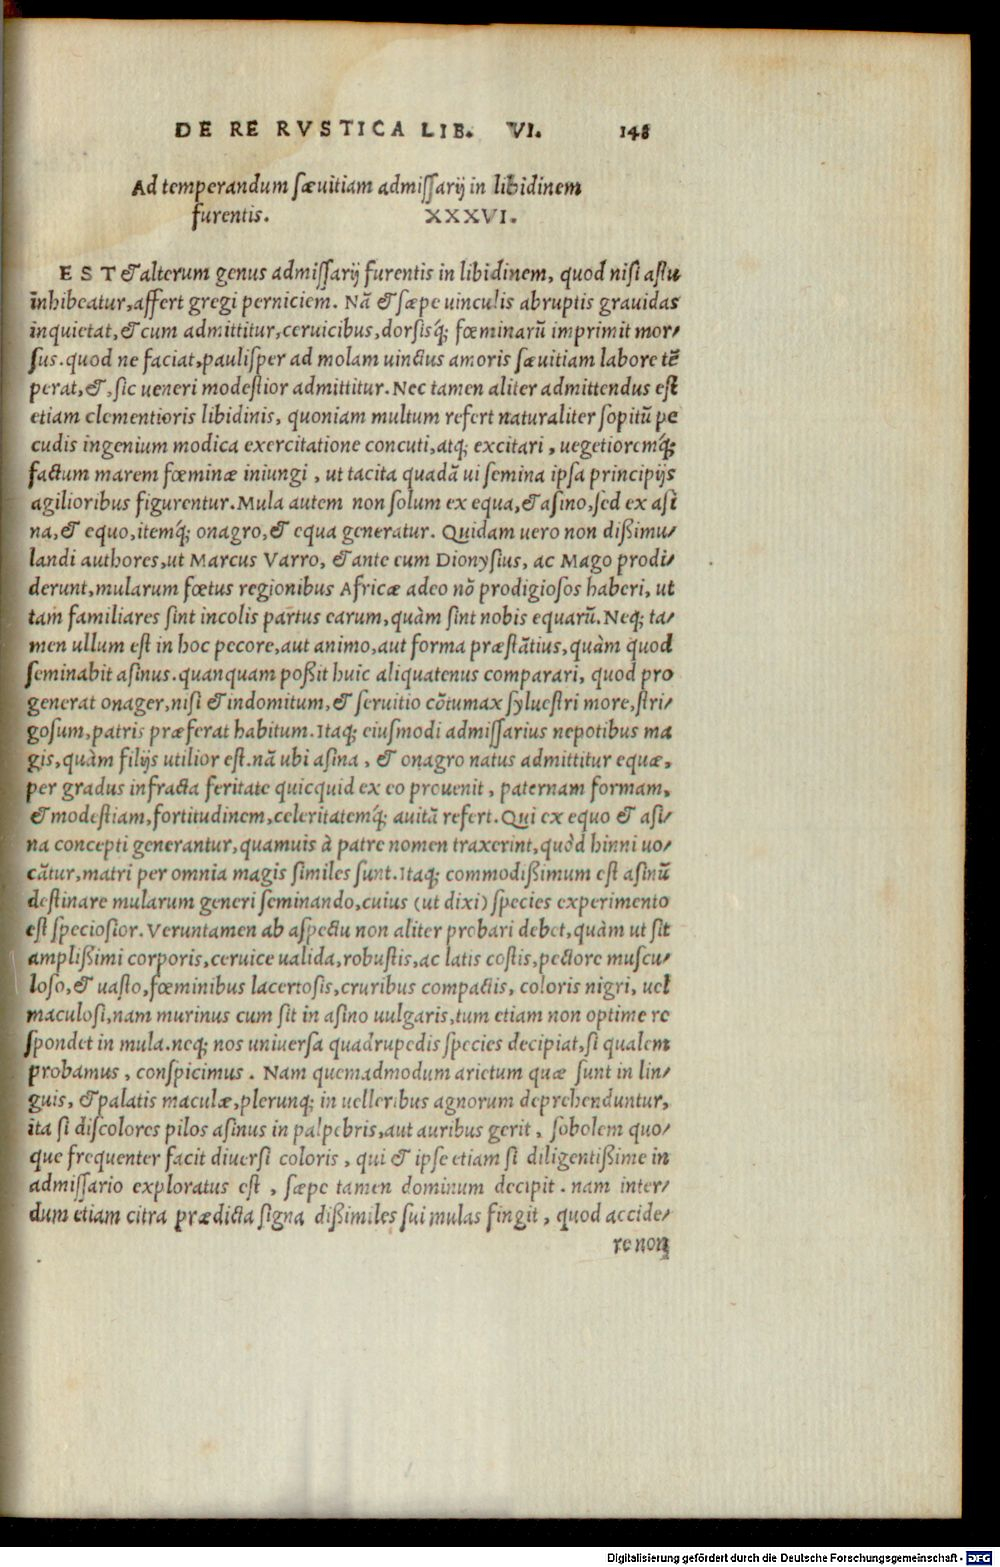 DE RE RVSTICA LIB. VI. 148
Ad temperandum sæuitiam admissarij in libidinem
furentis. XXXVI.
EST & alterum genus admissarij furentis in libidinem, quod nisi astu
inhibeatur, affert gregi perniciem. Nã & sæpe uinculis abruptis grauidas
inquietat, & cum admittitur, ceruicibus, dorsisq́; fœminarũ imprimit mor/
sus. quod ne faciat, paulisper ad molam uinctus amoris sæuitiam labore tẽ
perat, &, sic ueneri modestior admittitur. Nec tamen aliter admittendus est
etiam clementioris libidinis, quoniam multum refert naturaliter sopitũ pe
cudis ingenium modica exercitatione concuti, atq; excitari, uegetioremq́;
factum marem fœminæ iniungi, ut tacita quadã ui semina ipsa principijs
agilioribus figurentur. Mula autem non solum ex equa, & asino, sed ex asi
na, & equo, itemq́; onagro, & equa generatur. Quidam uero non dißimu/
landi authores, ut Marcus Varro, & ante eum Dionysius, ac Mago prodi/
derunt, mularum fœtus regionibus Africæ adeo nõ prodigiosos haberi, ut
tam familiares sint incolis partus earum, quàm sint nobis equarũ. Neq; ta/
men ullum est in hoc pecore, aut animo, aut forma præstãtius, quàm quod
seminabit asinus. quanquam poßit huic aliquatenus comparari, quod pro
generat onager, nisi & indomitum, & seruitio cõtumax syluestri more, stri/
gosum, patris præferat habitum. Itaq; eiusmodi admissarius nepotibus ma
gis, quàm filijs utilior est. nã ubi asina, & onagro natus admittitur equæ,
per gradus infracta feritate quicquid ex eo prouenit, paternam formam,
& modestiam, fortitudinem, celeritatemq́; auitã refert. Qui ex equo & asi/
na concepti generantur, quamuis à patre nomen traxerint, quòd hinni uo/
cãtur, matri per omnia magis similes sunt. Itaq; commodißimum est asinũ
destinare mularum generi seminando, cuius (ut dixi) species experimento
est speciosior. Veruntamen ab aspectu non aliter probari debet, quàm ut sit
amplißimi corporis, ceruice ualida, robustis, ac latis costis, pectore muscu/
loso, & uasto, fœminibus lacertosis, cruribus compactis, coloris nigri, uel
maculosi, nam murinus cum sit in asino uulgaris, tum etiam non optime re
spondet in mula. neq; nos uniuersa quadrupedis species decipiat, si qualem
probamus, conspicimus. Nam quemadmodum arietum quæ sunt in lin/
guis, & palatis maculæ, plerunq; in uelleribus agnorum deprehenduntur,
ita si discolores pilos asinus in palpebris, aut auribus gerit, sobolem quo/
que frequenter facit diuersi coloris, qui & ipse etiam si diligentißime in
admissario exploratus est, sæpe tamen dominum decipit. nam inter/
dum etiam citra prædicta signa dißimiles sui mulas fingit, quod accide/
re non
Digitalisierung gefördert durch die Deutsche Forschungsgemeinschaft - DFG